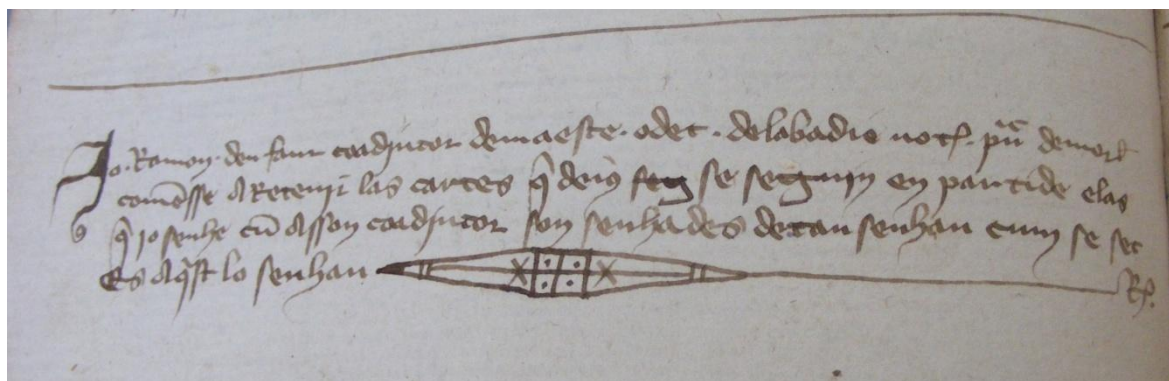 Jo. Ramon. deu faur coadjutor de maeste. odet. de labadie not. pu. de morl
comẽsse a Retenir las cartes q̃ deius se seguin en partide e las
q̃ jo senhe cũ a sson coadjutor son senhades de tau senhau cum se sec
Es aq̃st lo senhau R.